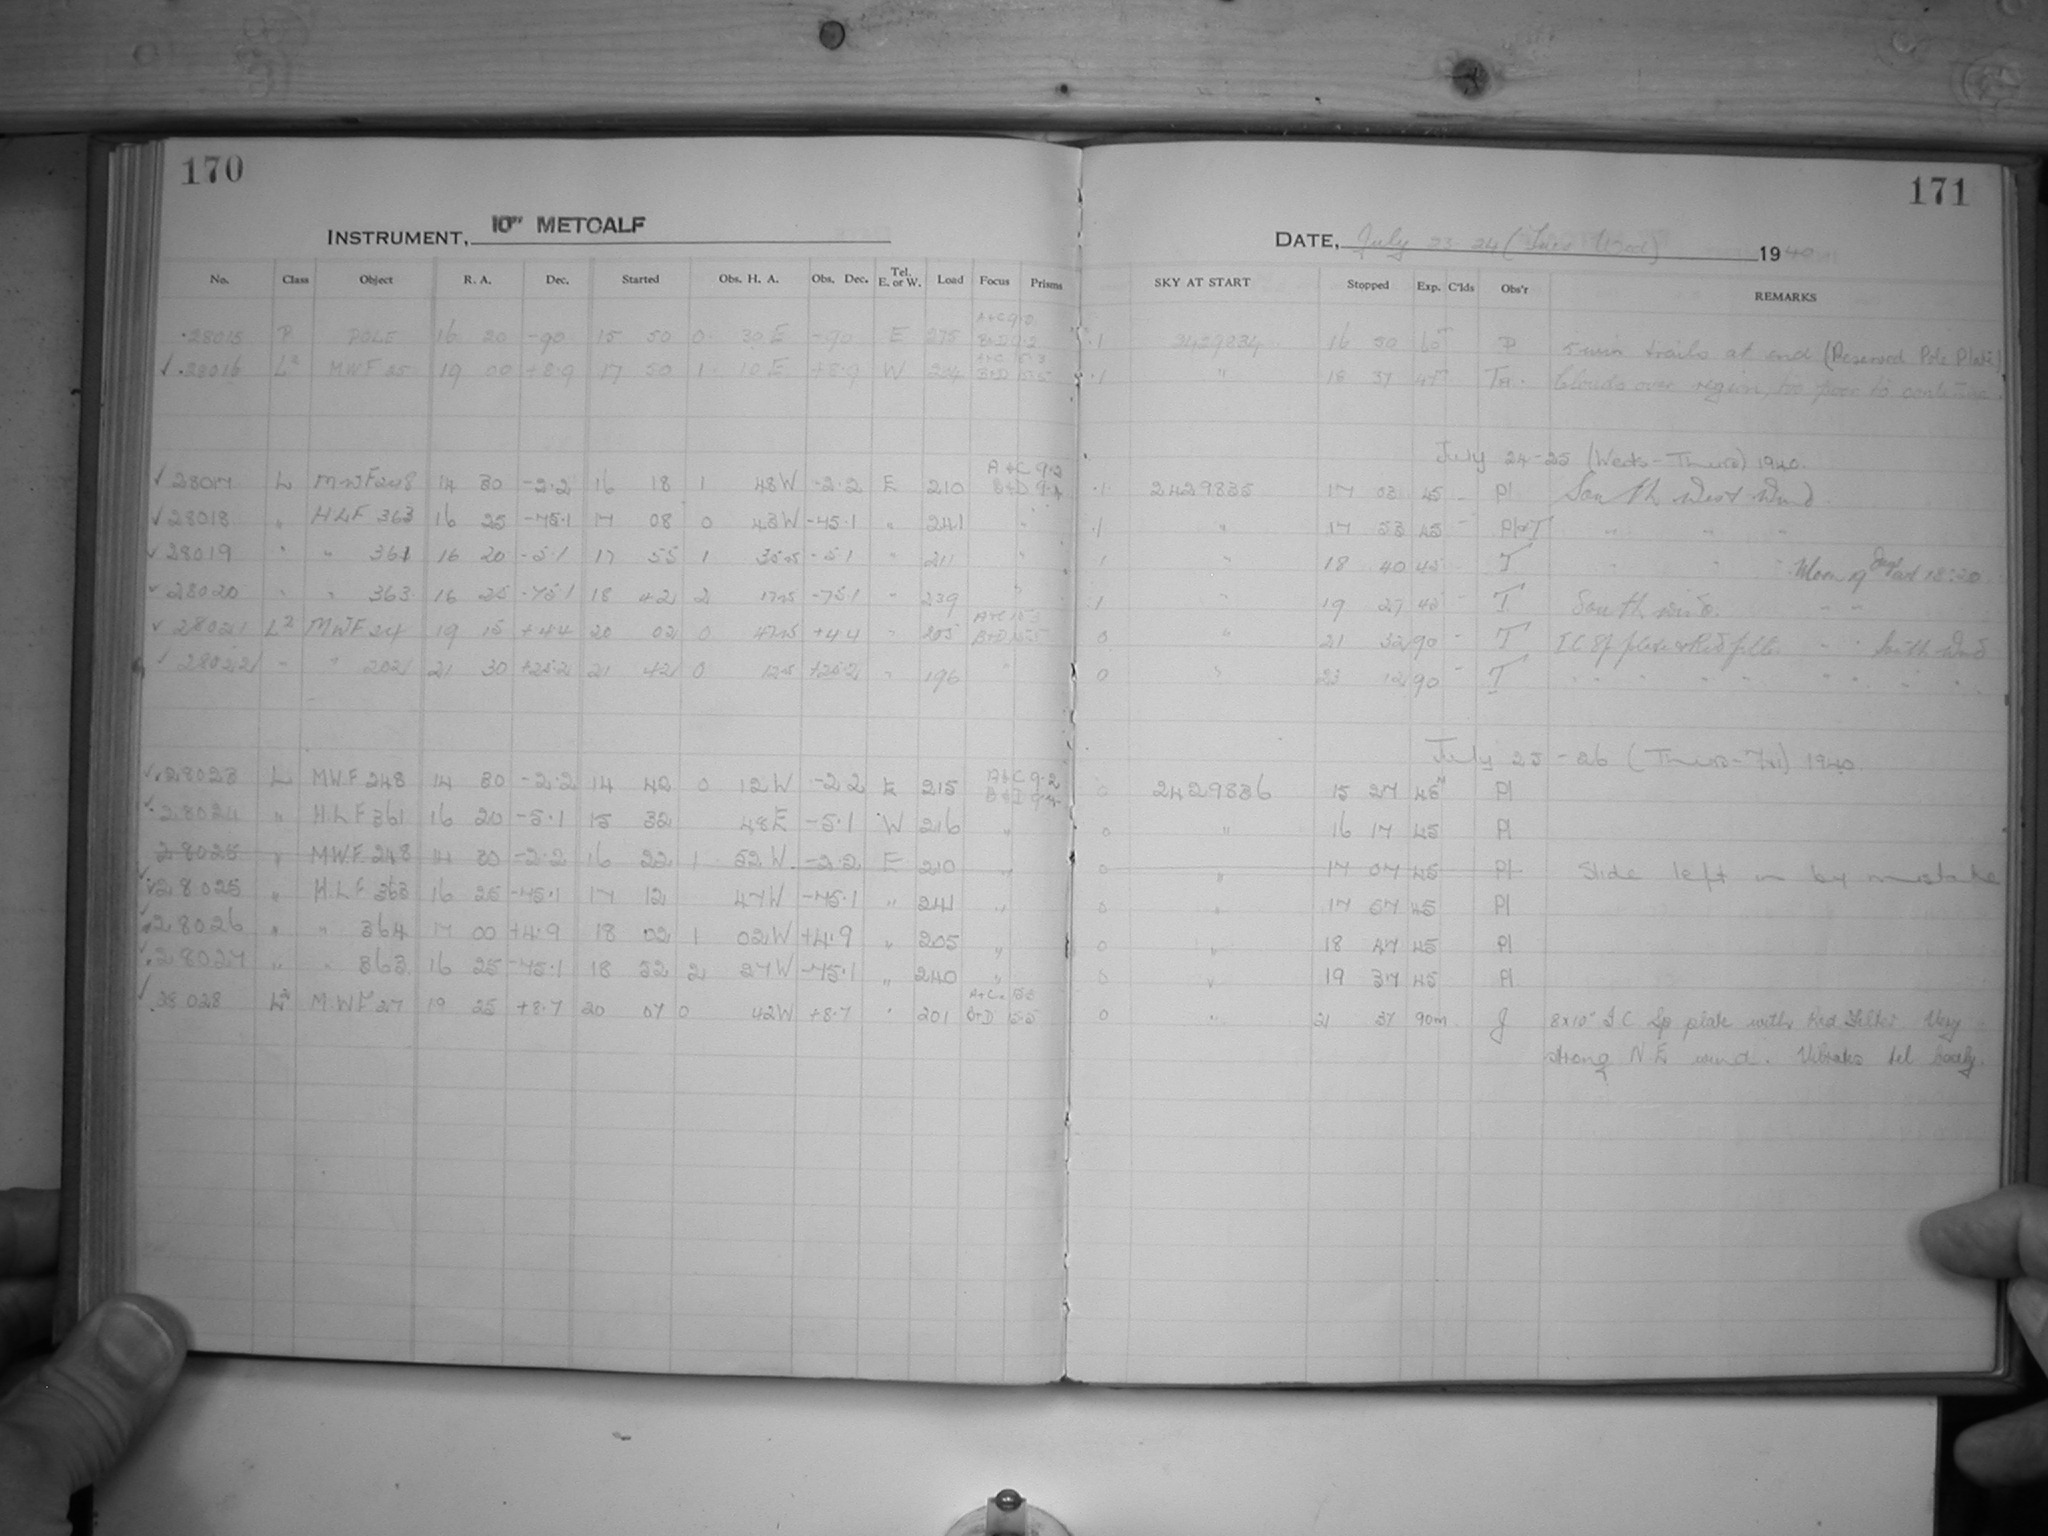 170
171
INSTRUMENT, 10" METCALF
DATE, July 23-24 (Tues Wed) 1940
No. Class Object R. A. Dec. Started Obs. H. A. Obs. Dec. Tel. E. or W. Load Focus Prisms SKY AT START Stopped Exp. C'lds Obs'r REMARKS
28015 P POLE 16 20 -90 15 50 0 30 E -90 E 275 ·1 2429834 16 50 60 P 5 min trails at end (Reserved Pole Plate)
28016 L2 MWF 25 19 00 +8.9 17 50 1 10 E +8.9 W 204 ·1 " 18 37 47 Clouds over region, too poor to continue.
July 24-25 (Weds-Thurs) 1940.
A+C 9.2
28017 L MWF 248 14 30 -2.2 16 18 1 48W -2.2 E 210 B+D 9.4 ·1 2429835 17 03 45 Pl South West Wind.
28018 " HLF 363 16 25 -75.1 17 08 0 43W -75.1 " 241 " ·1 " 17 53 45 " " "
28019 " " 361 16 20 -5.1 17 55 1 -5.1 " 211 " 1 " 18 40 45 T " " " Moon 18:20
28020 " " 363 16 25 -75.1 18 42 2 -75.1 " 239 " ·1 " 19 27 45 T South wind. " "
28021 L2 MWF 24 19 15 +4.4 20 02 0 +4.4 " 205 0 " 21 32 90 T South Wind
28022 " " 202 21 30 +25.2 21 42 0 +25.2 " 196 " 0 " 23 12 90 T
July 25-26 (Thurs-Fri) 1940.
A+C 9.2
28023 L MWF 248 14 30 -2.2 14 42 0 12W -2.2 E 215 B+D 9.4 0 2429836 15 27 45 Pl
28024 " H.L F 361 16 20 -5.1 15 32 48E -5.1 W 216 " 0 " 16 17 45 Pl
28025 " MWF 248 14 30 -2.2 16 22 1 52W -2.2 E 210 " 0 " 17 07 45 Pl Slide left in by mistake
28025 " H.L F 363 16 25 -75.1 17 12 47W -75.1 " 241 " 0 " 17 57 45 Pl
28026 " " 364 17 00 +4.9 18 02 1 02W +4.9 " 205 " 0 " 18 47 45 Pl
28027 " " 363 16 25 -75.1 18 52 2 27W -75.1 " 240 " 0 " 19 37 45 Pl
28028 L2 M.WF 27 19 25 +8.7 20 07 0 42W +8.7 " 201 0 " 21 37 90m J 8x10" I.C Sp plate with Red Filter Very
strong N E wind. Vibrates tel badly.